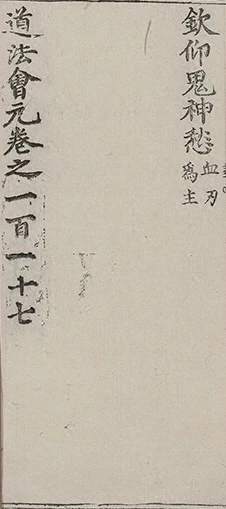 欽仰鬼神愁
血刃
爲主
道法會元卷之一百一十七